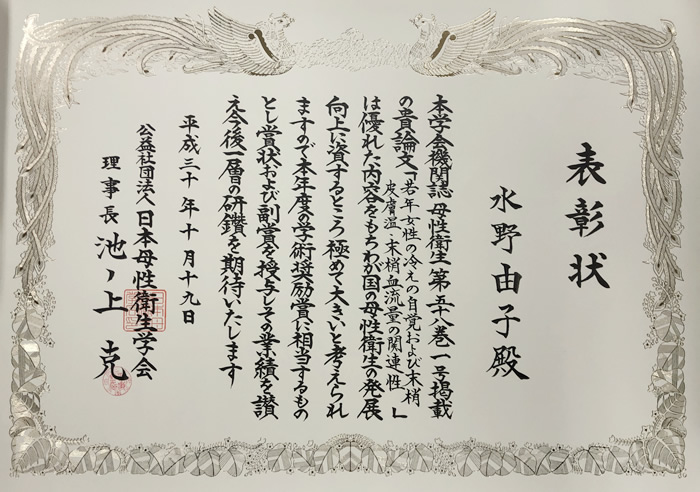 表彰状
水野由子殿
本学会機関誌 母性衛生 第五十八巻一号掲載
の貴論文「若年女性の冷えの自覚および末梢
皮膚温・末梢血流量の関連性」
は優れた内容をもちわが国の母性衛生の発展
向上に資するところ極めて大きいと考えられ
ますので本年度の学術奨励賞に相当するもの
とし賞状および副賞を授与しその業績を讃
え今後一層の研鑽を期待いたします
平成三十年十月十九日
公益社団法人 日本母性衛生学会
理事長 池ノ上 克